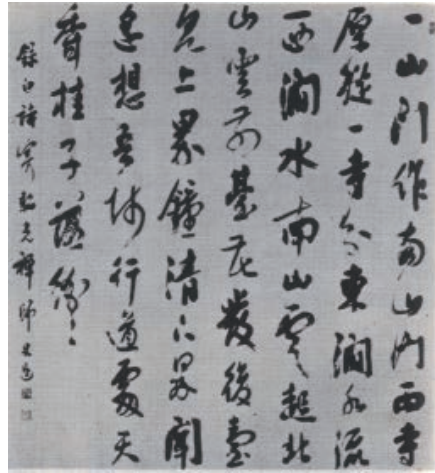 一山門作兩山門兩寺
原從一寺分東澗水流
西澗水南山雲起北
山雲前臺花發後臺
見上界鐘清下界聞
遙想吾師行道處天
香桂子落紛〻
錄白詩寄韜光禪師